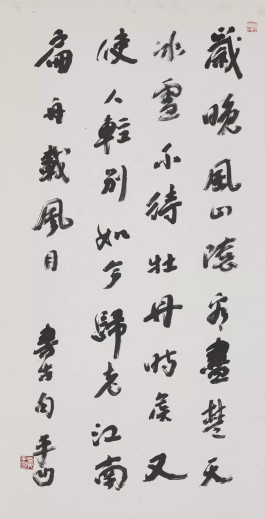 歲晚風山陰看盡楚天
冰雪不待牡丹時候又
使人輕別如今歸老江南
扁舟載風月
書古句 平凹